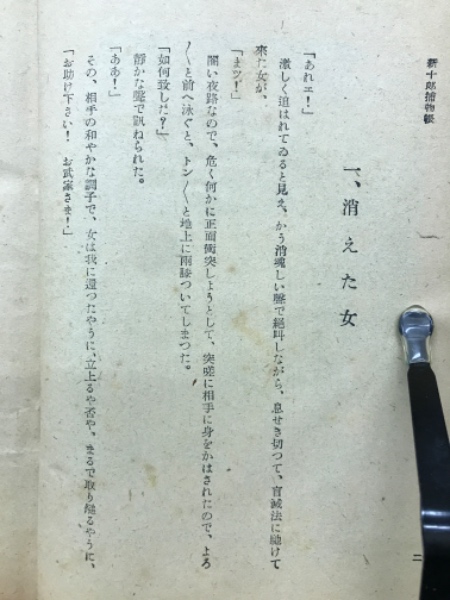 新十郎捕物帳
一、消えた女
「あれエ！」
激しく追はれてゐると見え、かう消魂しい聲で絕叫しながら、息せき切つて、盲滅法に馳けて
來た女が、
「まツ！」
闇い夜路なので、危く何かに正面衝突しようとして、突嗟に相手に身をかはされたので、よろ
〱と前へ泳ぐと、トン〱と地上に兩膝ついてしまつた。
「如何致した？」
靜かな聲で訊ねられた。
「ああ！」
その、相手の和やかな調子で、女は我に還つたやうに、立上るや否や。まるで取り縋るやうに、
「お助け下さい！　お武家さま！」
二